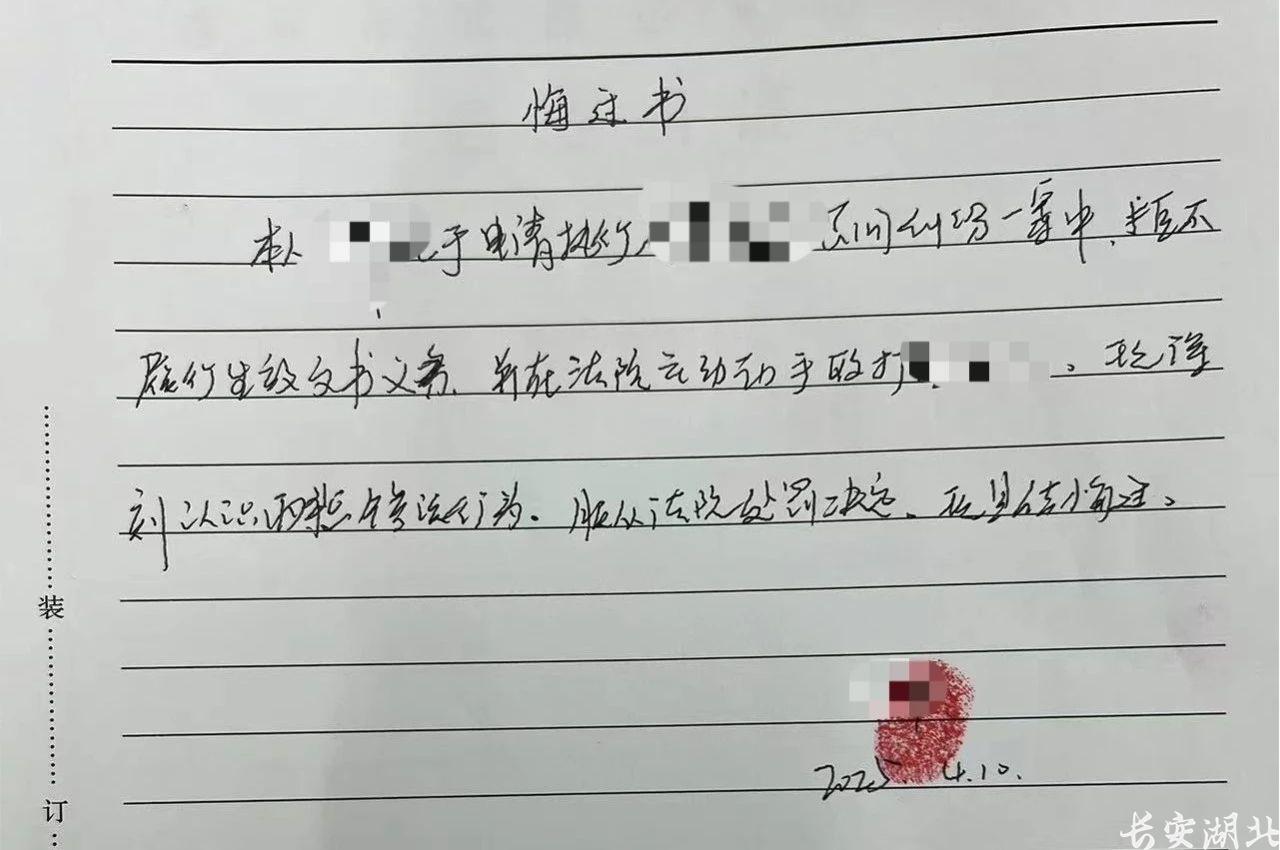 悔过书
本人 于申请执行 合同纠纷一案中,拒不
履行生效文书义务,并在法院云动动手殴打 。现深
刻认识到 错误行为。服从法院处罚决定、具结悔过。
2025 4.10.
装
订
长安湖北